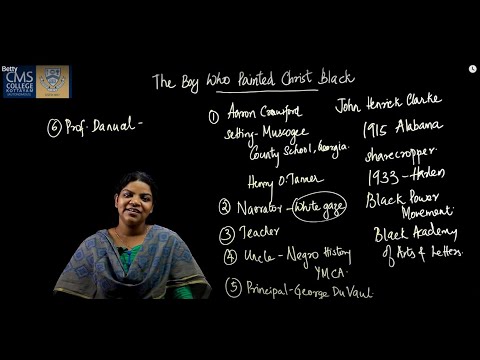 Betty
CMS
COLLEGE
KOTTAYAM
The Boy Who Painted Christ Black
⑥ Prof. Danual -
① Aaron Crawford
setting - Muscogee
County School, Georgia.
Henry O. Tanner
② Narrator - White gaze
③ Teacher
④ Uncle - Negro History
YMCA.
⑤ Principal - George Du Vaul.
John Henrick Clarke
1915 Alabama
sharecropper.
1933 - Harlem
Black Power
Movement.
Black Academy
of Arts & Letters.